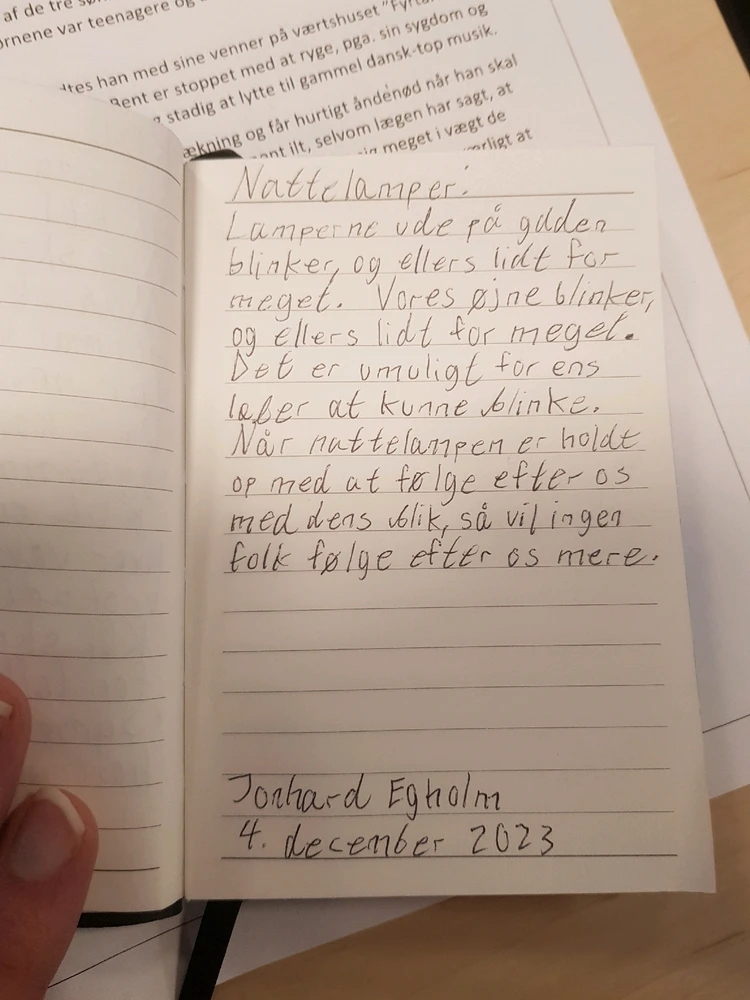 af de tre
ørnene var teenagere og
dtes han med sine venner på værtshuset "Fyrtå
Bent er stoppet med at ryge, pga. sin sygdom og
stadig at lytte til gammel dansk-top musik.
ækning og får hurtigt åndenød når han skal
ilt, selvom lægen har sagt, at
meget i vægt de
Nattelamper:
Lamperne ude på gaden
blinker, og ellers lidt for
meget. Vores øjne blinker,
og ellers lidt for meget.
Det er umuligt for ens
læber at kunne blinke.
Når nattelampen er holdt
op med at følge efter os
med dens blik, så vil ingen
folk følge efter os mere.
Jonhard Egholm
4. december 2023